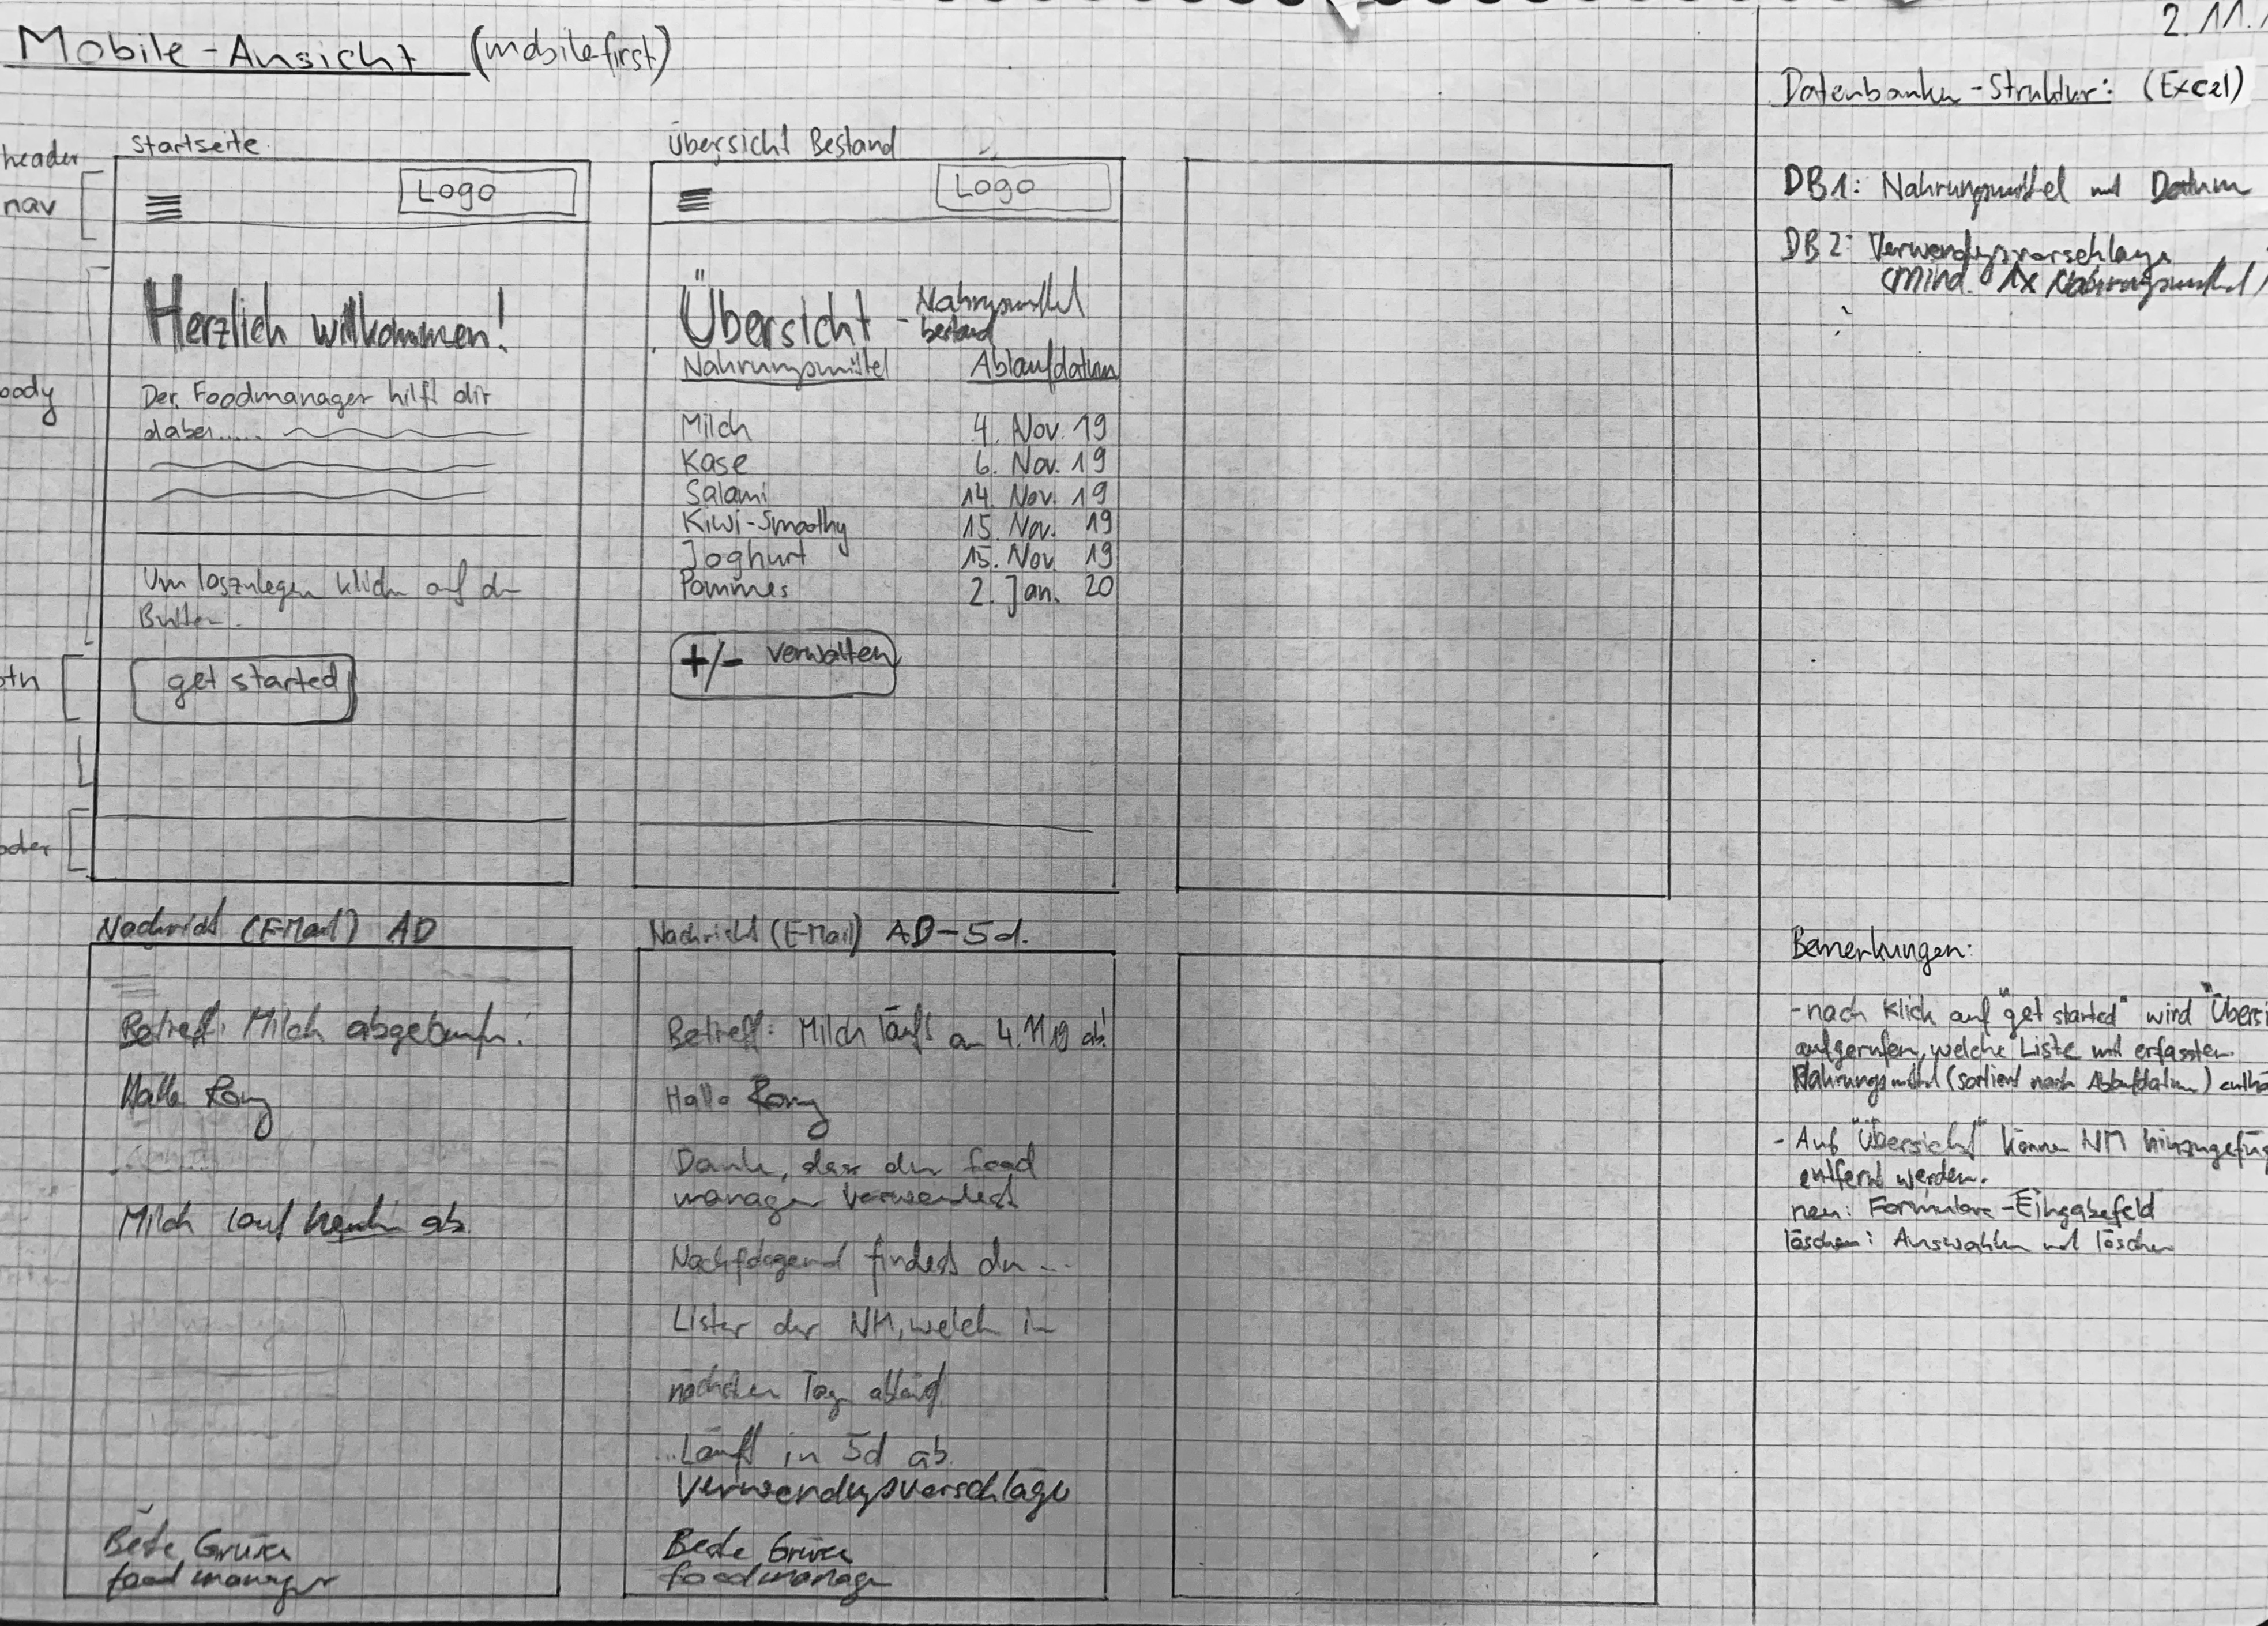 Mobile-Ansicht (mobilefirst)
Startseite
header
nav
Logo
Herzlich willkommen!
body
Der Foodmanager hilft dir
dabei.....
Um loszulegen klicke auf den
Button.
btn
get started
Übersicht Bestand
Logo
Übersicht - Nahrungsmittel
bestand
Nahrungsmittel Ablaufdatum
Milch 4. Nov. 19
Käse 6. Nov. 19
Salami 14. Nov. 19
Kiwi-Smoothy 15. Nov. 19
Joghurt 15. Nov 19
Pommes 2. Jan. 20
+/- verwalten
Nachricht (E-Mail) AD
Betreff: Milch abgelaufen!
Hallo
Milch läuft heute ab.
Beste Grüsse
foodmanager
Nachricht (E-Mail) AD-5d.
Betreff: Milch läuft am 4.11.19 ab!
Hallo
Danke, dass du food
manager verwendest
Nachfolgend findest du ...
Liste der NM, welche in
nächsten Tagen abläuft.
...Läuft in 5d ab.
Verwendungsvorschläge
Beste Grüsse
foodmanager
2.11.
Datenbanken-Struktur: (Excel)
DB1: Nahrungsmittel mit Datum
DB2: Verwendungsvorschläge
(mind. 1x Nahrungsmittel)
Bemerkungen:
- nach Klick auf "get started" wird "Übersi
aufgerufen, welche Liste mit erfassten
Nahrungsmittel (sortiert nach Ablaufdatum) enthä
- Auf "Übersicht" können NM hinzugefüg
entfernt werden.
neu: Formular-Eingabefeld
löschen: Auswählen und löschen